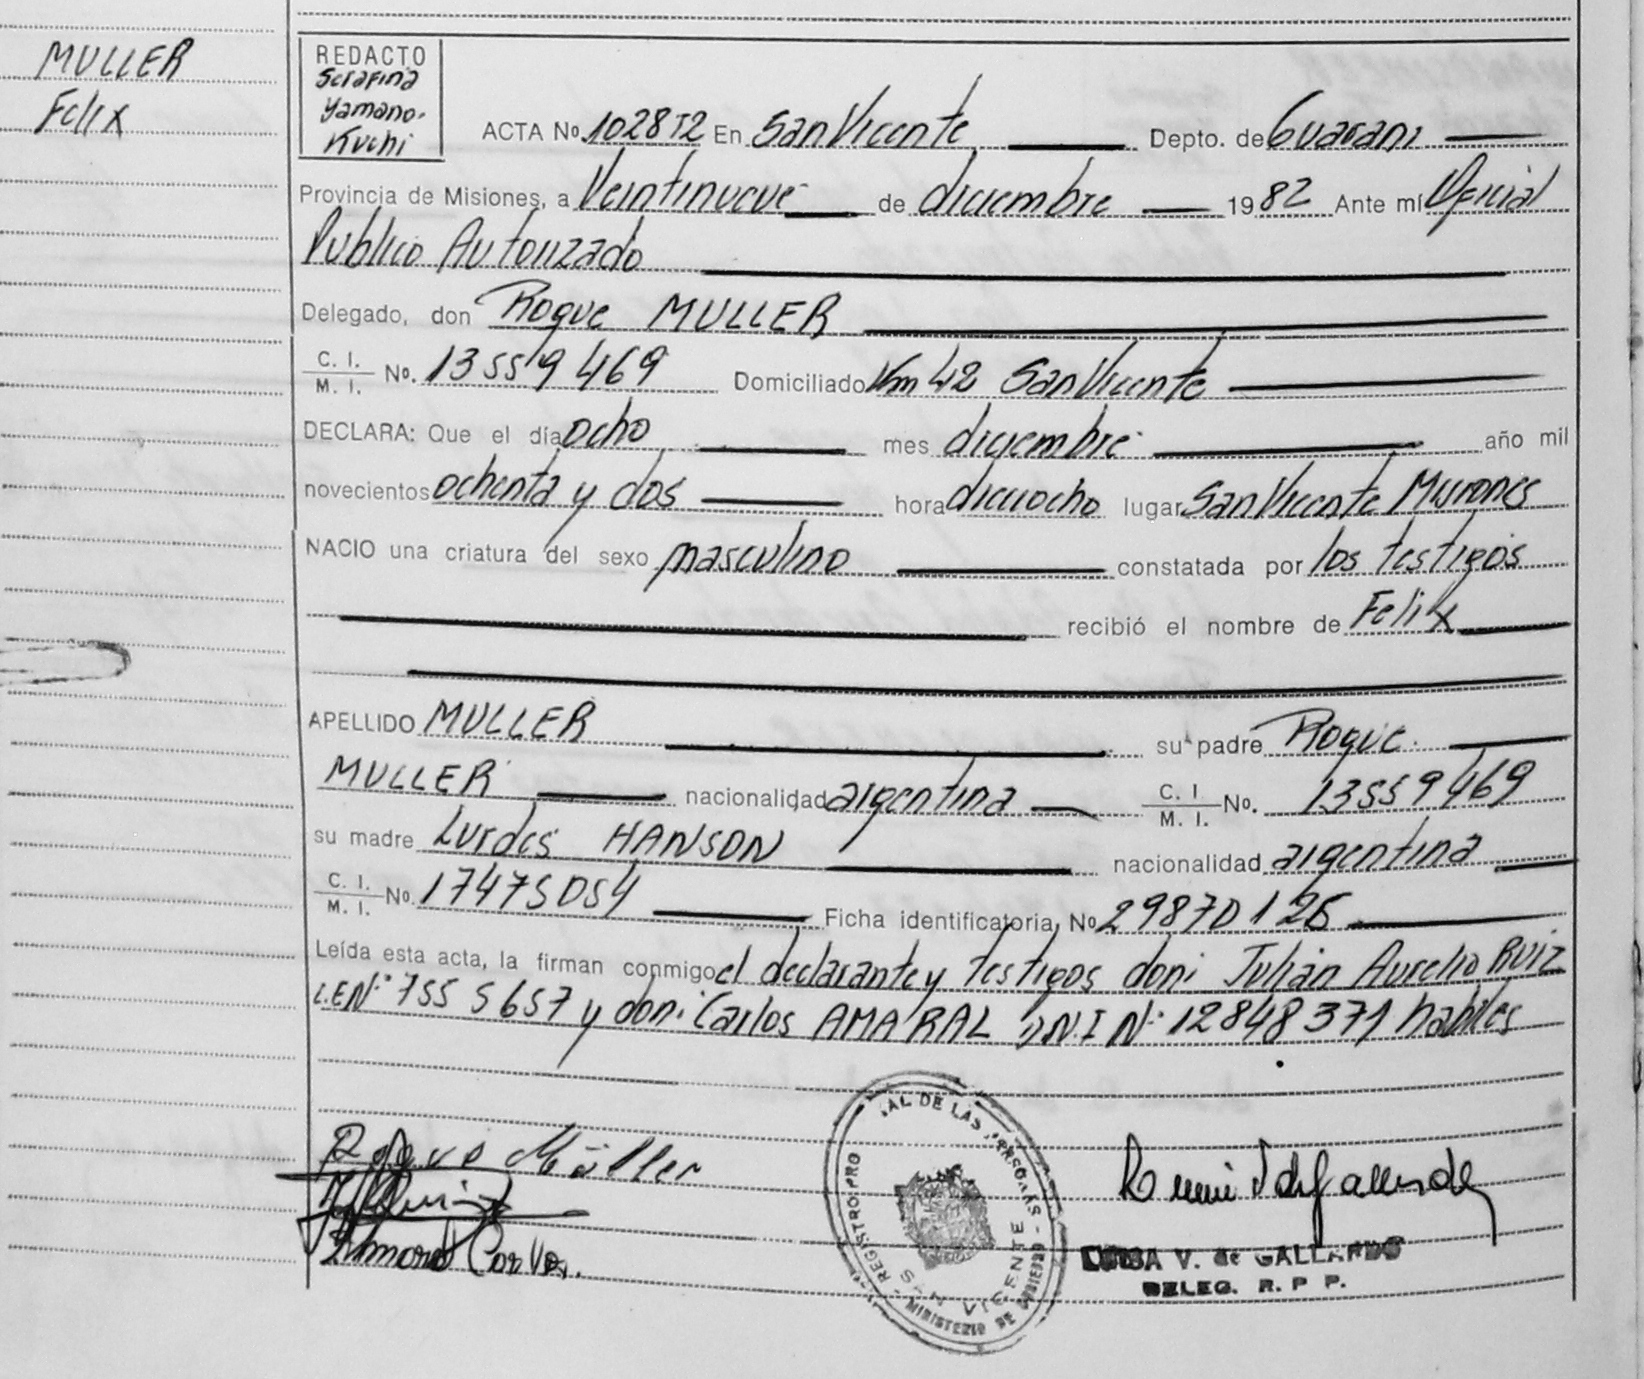 MULLER
Felix
REDACTO
Serafina
Yamano-
Kuchi
ACTA No. 1028 T2 En San Vicente Depto. de Guarani
Provincia de Misiones, a Veintinueve de diciembre 1982 Ante mí Oficial
Publico Autorizado
Delegado, don Roque MULLER
C. I. / M. I. No. 13559469 Domiciliado Km 42 San Vicente
DECLARA: Que el día ocho mes diciembre año mil
novecientos ochenta y dos hora dieciocho lugar San Vicente Misiones
NACIO una criatura del sexo masculino constatada por los testigos
recibió el nombre de Felix
APELLIDO MULLER su padre Roque
MULLER nacionalidad argentina C. I. / M. I. No. 13559469
su madre Lurdes HANSON nacionalidad argentina
C. I. / M. I. No. 17475054 Ficha identificatoria No 29870126
Leída esta acta, la firman conmigo el declarante y testigos don: Julián Aurelio RUIZ
L.E Nº 7555657 y don: Carlos AMARAL D.N.I Nº 12848371 habiles
Roque Müller
Amaral Carlos
REGISTRO PRO AL DE LAS PERSONAS - MINISTERIO DE GOBIERNO
SAN VICENTE
LUISA V. de GALLARDO
DELEG. R. P P.